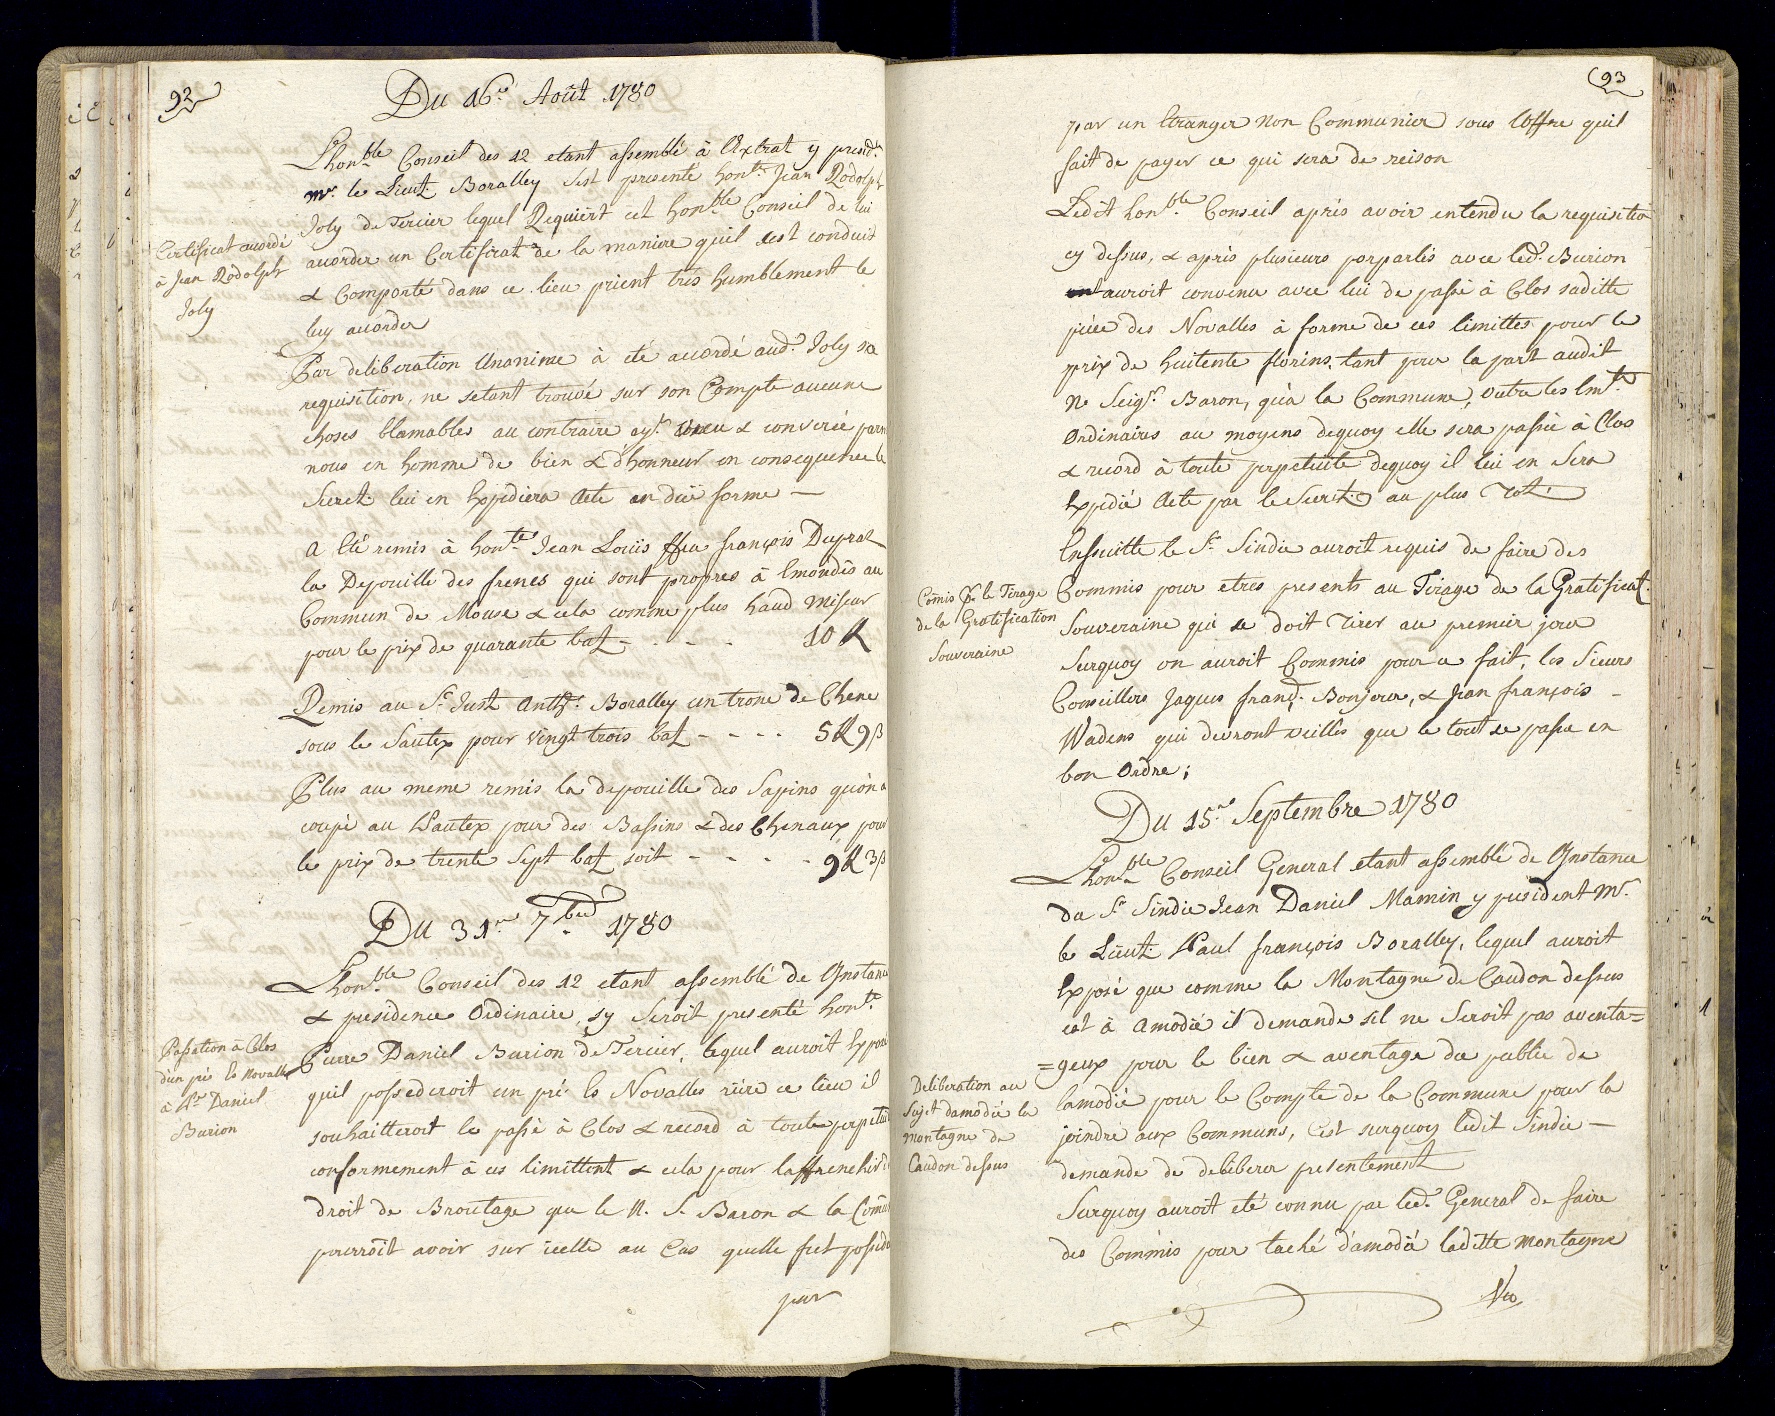 92
Du 16.e Août 1780
Lhon.ble Conseil des 12 etant assemblé à Extrat y presid.t
Mr. le Lieut. Boralley sest presenté hon.te Jean Rodolph
Joly de Tercier lequel Requiert cet hon.ble Conseil de lui
Certificat acordé
à Jean Rodolph
Joly
acorder un Certificat de la maniere quil sest conduit
& Comporté dans ce lieu prient très humblement le
luy acorder
Par deliberation Unanime à eté acordé aud.t Joly sa
requisition, ne setant trouvé sur son Compte aucune
choses blamables au contraire ay.t vecu & conversé parmi
nous en homme de bien & dhonneur en consequence le
Secret. lui en Expediera Acte en düe forme —
a Eté remis à hon.te Jean Louïs ffeu françois Dupraz
la Depouille des frenes qui sont propres à Emondés au
Commun de Mouse & cela comme plus haud Miseur
pour le prix de quarante batz - - - - 10 ff
Remis au Sr. Just Anth.e Boralley un tronc de Chene
sous le Sautex pour vingt trois batz - - - - 5 ff 9 ß
Plus au meme remis la depouille des Sapins quón a
coupé au Pautex pour des Bassins & des Chenaux pour
le prix de trente Sept batz soit - - - - - 9 ff 3 ß
Du 31.e 7.bre 1780
Lhon.ble Conseil des 12 etant assemblé de Instance
& presidence Ordinaire, sy Seroit presenté hon.te
Passation à Clos
dun pré Es Novalles
à P.re Daniel
Burion
Pierre Daniel Burion de Tercier, lequel auroit Exposé
quil possederoit un pré Es Novalles riere ce lieu il
souhaitteroit le passé à Clos & record à toute perpetuité
conformement à ces limittent & cela pour laffrenchir du
droit de Broutage que le N. S. Baron & la Comune
pourroit avoir sur icelle au Cas quelle fut possedé
par
93
par un Etranger non Communier sous loffre quil
fait de payer ce qui sera de reison
Ledit hon.ble Conseil après avoir entendu la requisitio
cy dessus, & après plusieurs porparlés avec led.t Burion
auroit convenu avec lui de passé à Clos saditte
piéce des Novalles à forme de ces limittes pour le
prix de huitente florins tant pour la part audit
N.e Seigr. Baron, quà la Commune, outre les Em.ts
Ordinaires au moyens dequoy elle sera passée à Clos
& record à toute perpetuité dequoy il lui en Sera
Expedié Acte par le Secret. au plus Tot.
Ensuitte le Sr. Sindic auroit requis de faire des
Comis p.r le Tirage
de la Gratification
Souveraine
Commis pour etres presents au Tirage de la Gratificat.
Souveraine qui se doit Tirer au premier jour
Surquoy on auroit Commis pour ce fait, les Sieurs
Conseillers Jaques franç. Bonjour, & Jean françois -
Wadens qui devront veilles que le tout se passe en
bon Ordre;
Du 15.e Septembre 1780
Lhon.ble Conseil General etant assemblé de Instance
du Sr. Sindic Jean Daniel Mamin y president Mr.
le Lieut. Paul françois Boralley, lequel auroit
Exposé que comme la Montagne de Caudon dessus
est à Amodié il demande sil ne Seroit pas aventa=
=geux pour le bien & aventage du public de
Deliberation au
Sujet damodié la
montagne de
Caudon dessus
lamodié pour le Compte de la Commune pour la
joindre aux Communs, Cest surquoy ledit Sindic —
demande de deliberer presentement
Surquoy auroit eté connu par led.t General de faire
des Commis pour taché dámodié laditte montagne